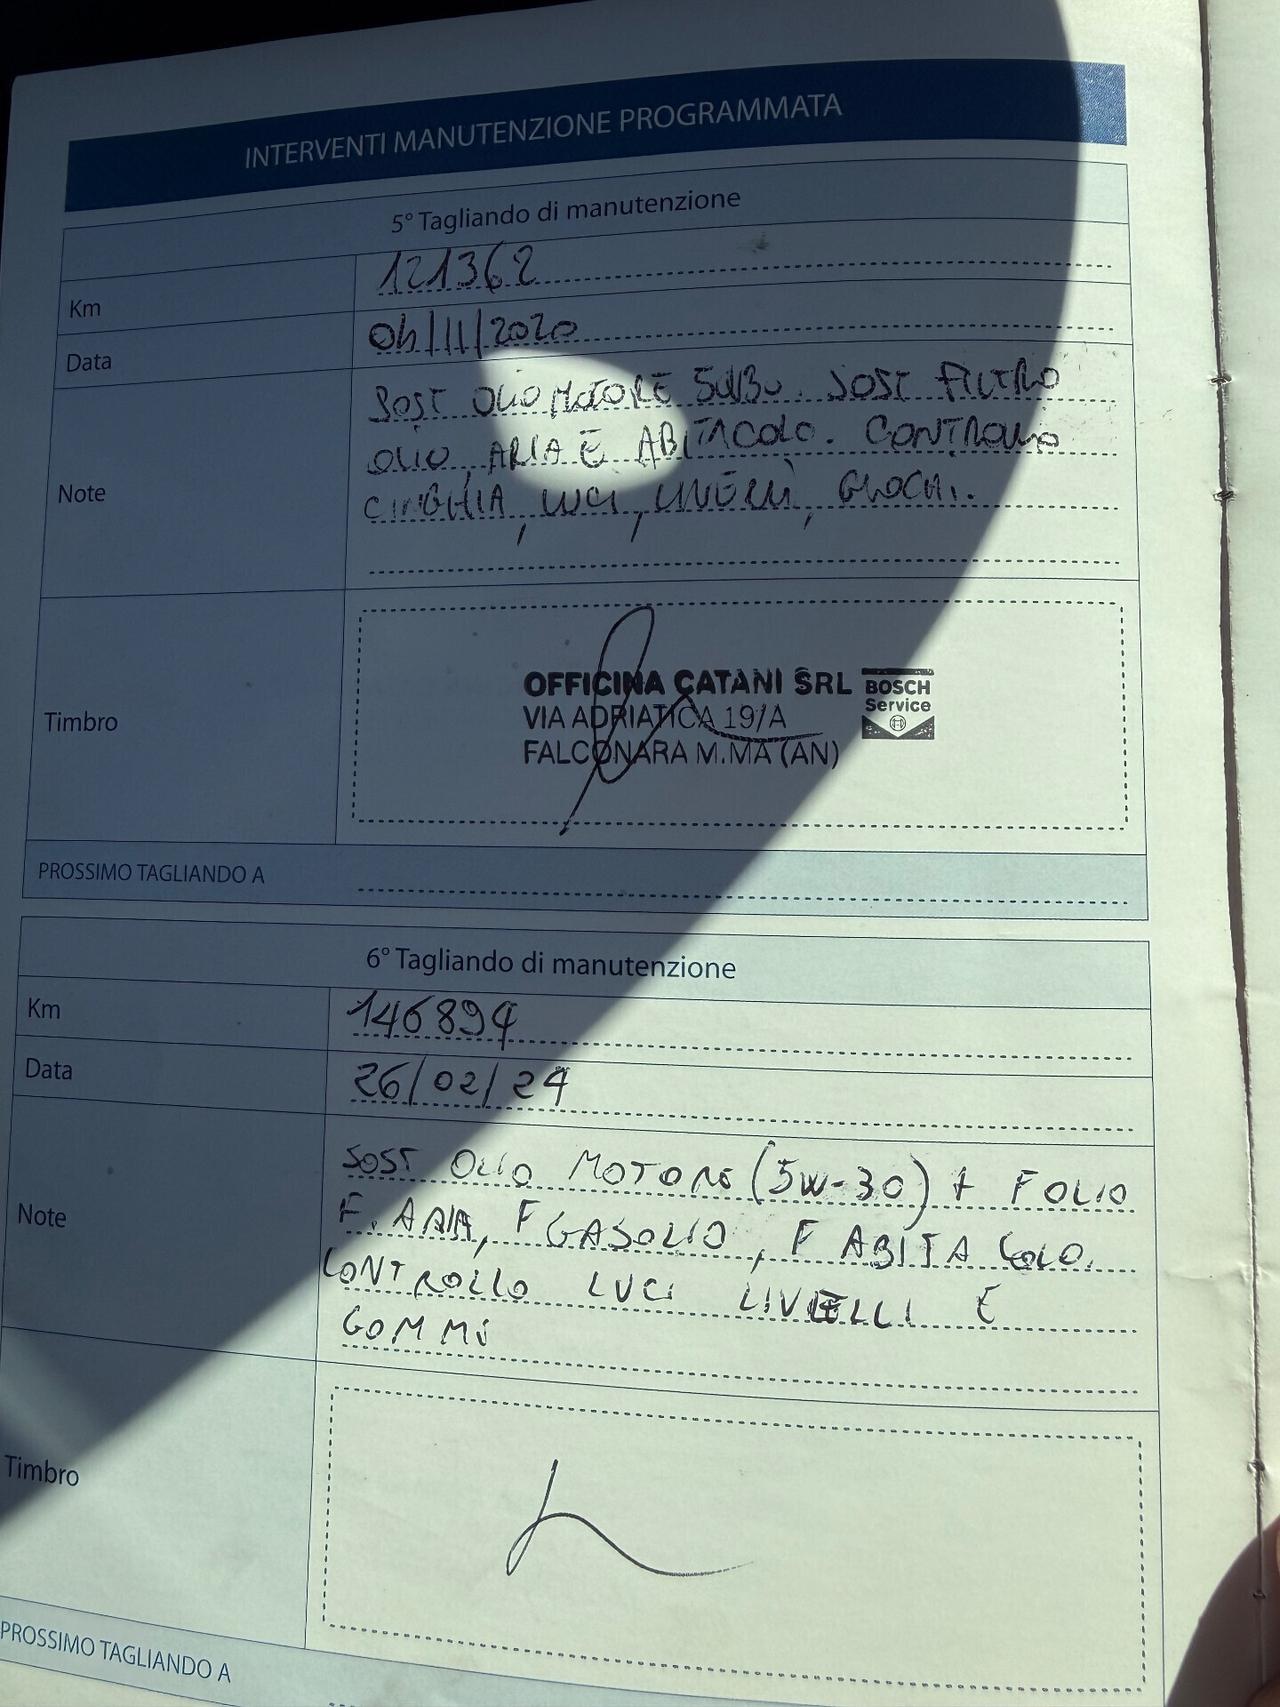 INTERVENTI MANUTENZIONE PROGRAMMATA
5° Tagliando di manutenzione
Km 121362
Data 04/11/2020
Note
SOST OLIO MOTORE 5W30. SOST FILTRO
OLIO, ARIA E ABITACOLO. CONTROLLO
CINGHIA, LUCI, LIVELLI, GIOCHI.
Timbro
OFFICINA CATANI SRL
VIA ADRIATICA 19/A
FALCONARA M.MA (AN)
BOSCH
Service
PROSSIMO TAGLIANDO A
6° Tagliando di manutenzione
Km 146894
Data 26/02/24
Note
SOST OLIO MOTORE (5W-30) + F OLIO
F. ARIA, F GASOLIO, F ABITACOLO.
CONTROLLO LUCI LIVELLI E
GOMME
Timbro
PROSSIMO TAGLIANDO A